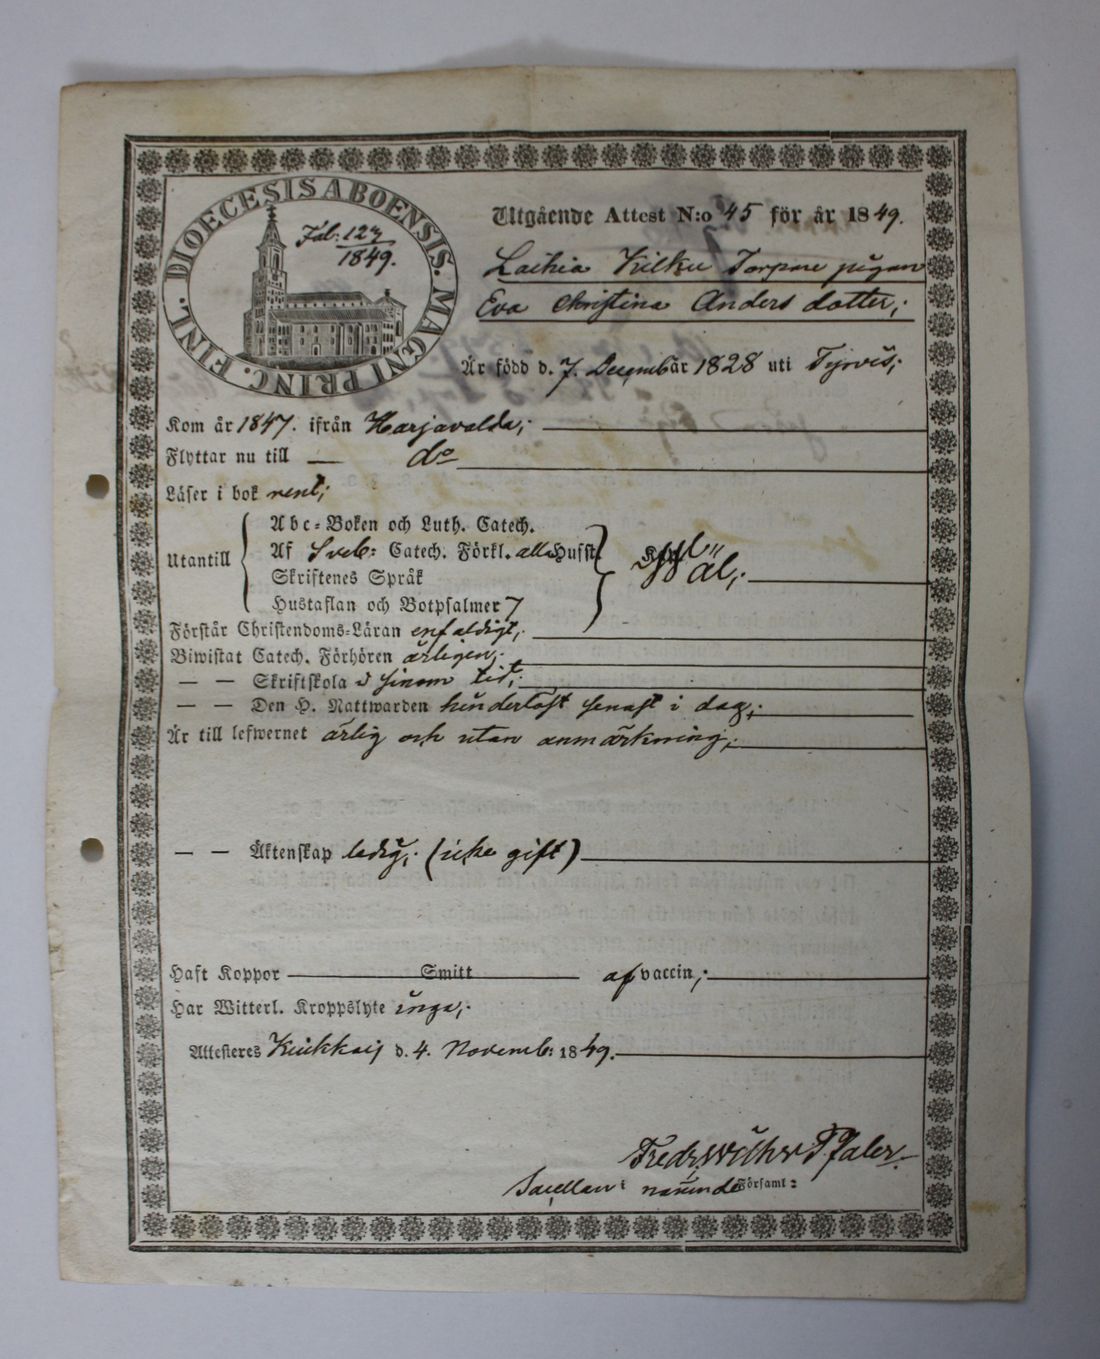 DIOECESIS ABOENSIS. MAGNI PRINC. FINL.
Fol. 127
1849.
Utgående Attest N:o 45 för år 1849.
Laihia Kilku Torpare pigan
Eva Christina Anders dotter;
Är född d. 7. Decembär 1828 uti Tyrvis;
Kom år 1847. ifrån Harjavalda;
Flyttar nu till — do
Läser i bok rent;
Utantill
Abc-Boken och Luth. Catech.
Af Sveb: Catech. Förkl. alla Hufst
Skriftenes Språk
Hustaflan och Botpsalmer 7
väl;
Förstår Christendoms-Läran enfaldigt;
Biwistat Catech. Förhören årligen;
— — Skriftskola i sinom tid;
— — Den H. Nattwarden hinderlöst senast i dag;
Är till lefwernet ärlig och utan anmärkning;
— — Äktenskap ledig; (icke gift)
Haft Koppor Smitt af vaccin;
Har Witterl. Kroppslyte inga;
Attesteres d. 4. Novemb: 1849.
Fredr. Wilh.
Sacellan i Församl: